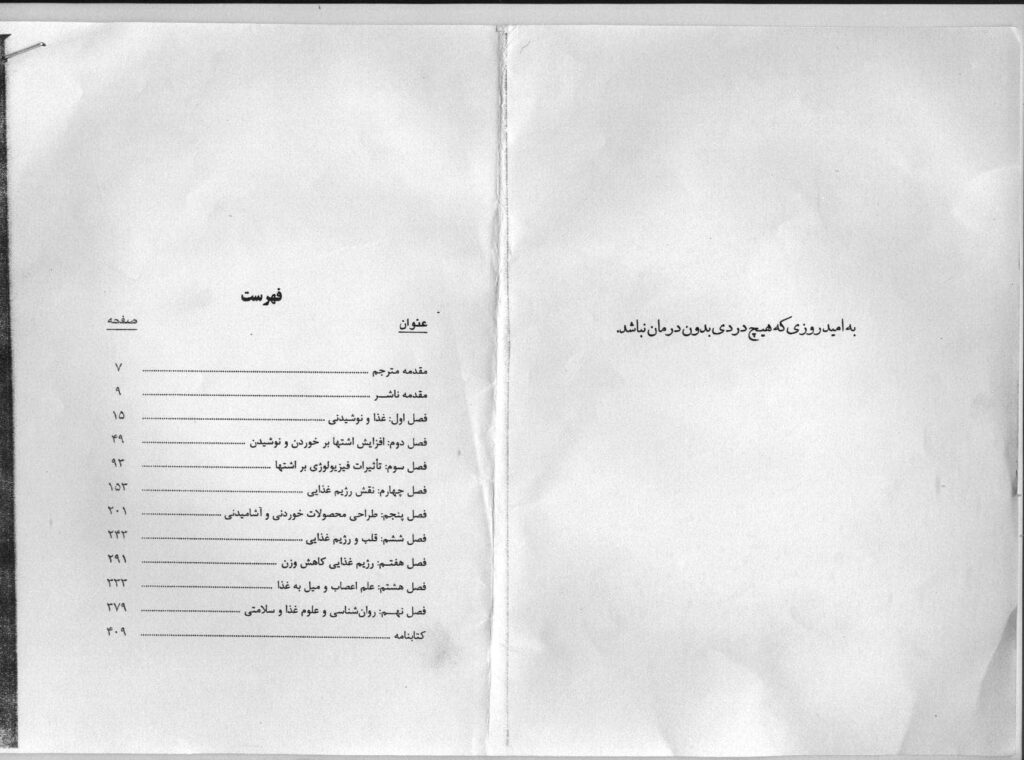 به امید روزی که هیچ دردی بدون درمان نباشد.
فهرست
عنوان صفحه
مقدمه مترجم ۷
مقدمه ناشـــر ۹
فصل اول: غذا و نوشیدنی ۱۵
فصل دوم: افزایش اشتها بر خوردن و نوشیدن ۴۹
فصل سوم: تأثیرات فیزیولوژی بر اشتها ۹۳
فصل چهارم: نقش رژیم غذایی ۱۵۳
فصل پنجم: طراحی محصولات خوردنی و آشامیدنی ۲۰۱
فصل ششم: قلب و رژیم غذایی ۲۴۳
فصل هفتـم: رژیم غذایی کاهش وزن ۲۹۱
فصل هشتم: علم اعصاب و میل به غذا ۳۳۳
فصل نهـــم: روان‌شناسی و علوم غذا و سلامتی ۳۷۹
کتابنامه ۴۰۹